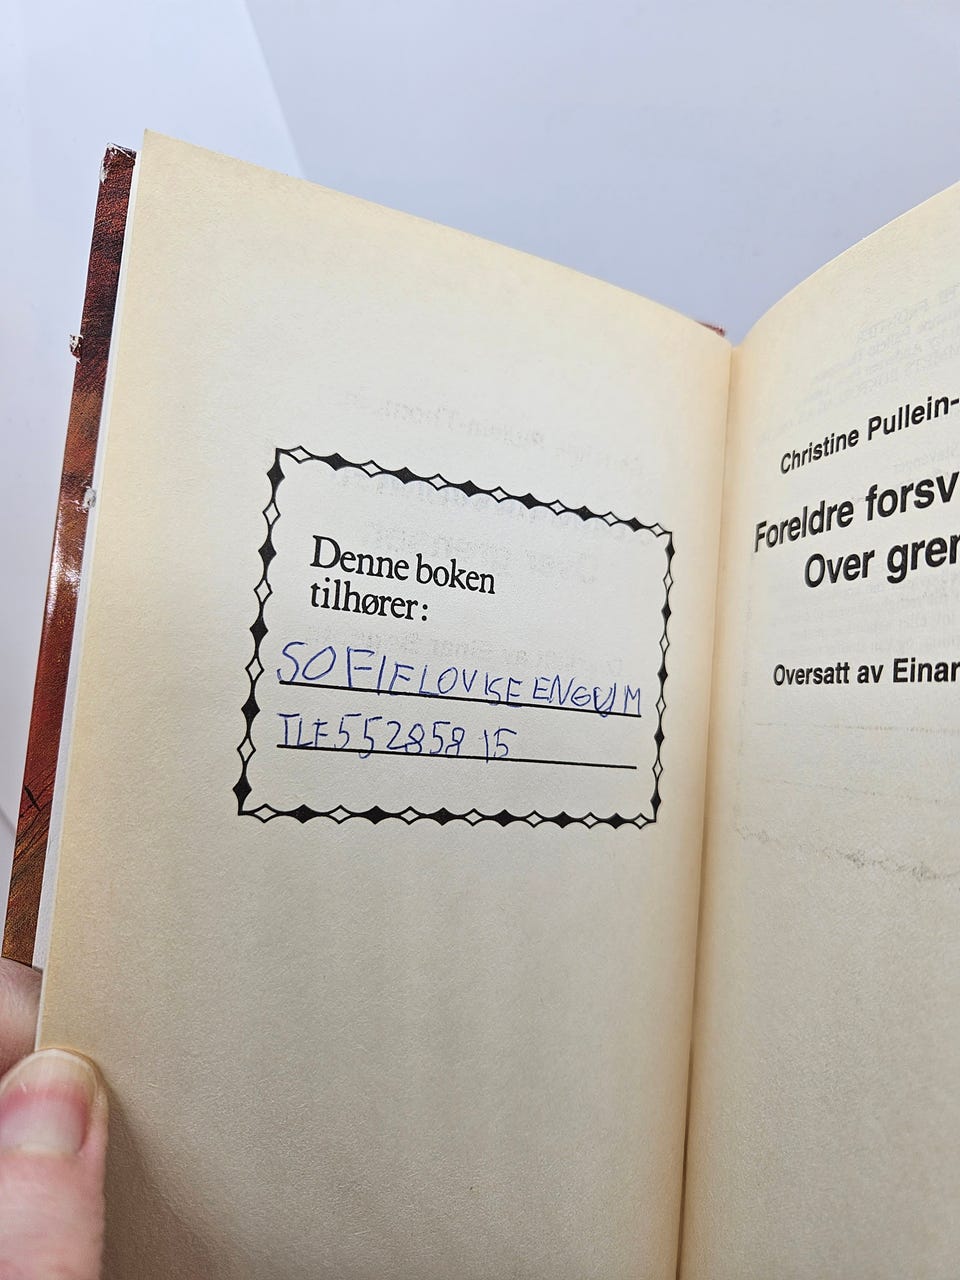 Denne boken
tilhører:
SOFIE LOVISE ENGUM
TLF 55285815
Christine Pullein-
Foreldre forsv
Over gren
Oversatt av Einar